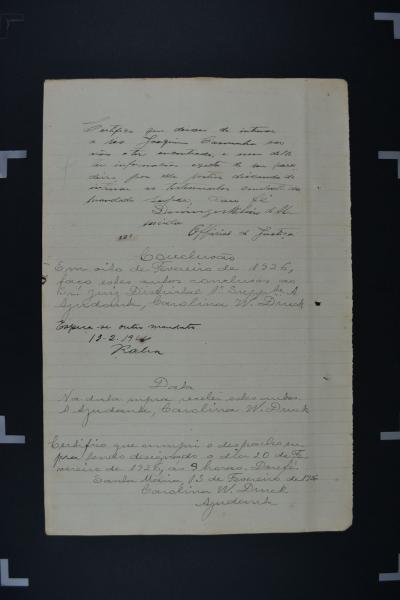 Certifico que deixei de intimar
a João Joaquim Carvalho por
não o ter encontrado, e nem delle
ter informações exacta do seu para
deiro, por elle portos deixando de
intimar as testemunhas constante do
mandado supra, Dou fé
Domingos de Al
meida
Official de Justiça
Conclusão
Em oito de Fevereiro de 1926,
faço estes autos conclusos ao
Snr Juiz Districtal 1º Supp
Ajudante, Carolina W. Druck
Expeça-se outro mandato
13-2-1926
Data
Na data supra recebi estes autos.
A Ajudante, Carolina W. Druck
Certifico que cumpri o despacho su-
pra sendo designado o dia 20 de Fe-
vereiro de 1926, as 9 horas. Dou fé.
Santa Maria, 13 de Fevereiro de 1926
Carolina W. Druck
Ajudante